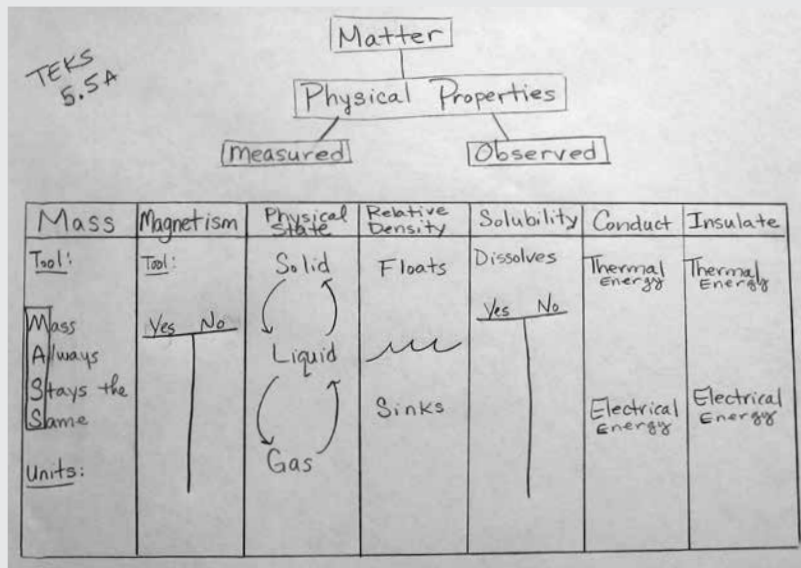 TEKS
5.5A
Matter
Physical Properties
Measured
Observed
Mass
Magnetism
Physical
State
Relative
Density
Solubility
Conduct
Insulate
Tool:
Mass
Always
Stays the
Same
Units:
Tool:
Yes No
Solid
Liquid
Gas
Floats
Sinks
Dissolves
Yes No
Thermal
Energy
Electrical
Energy
Thermal
Energy
Electrical
Energy